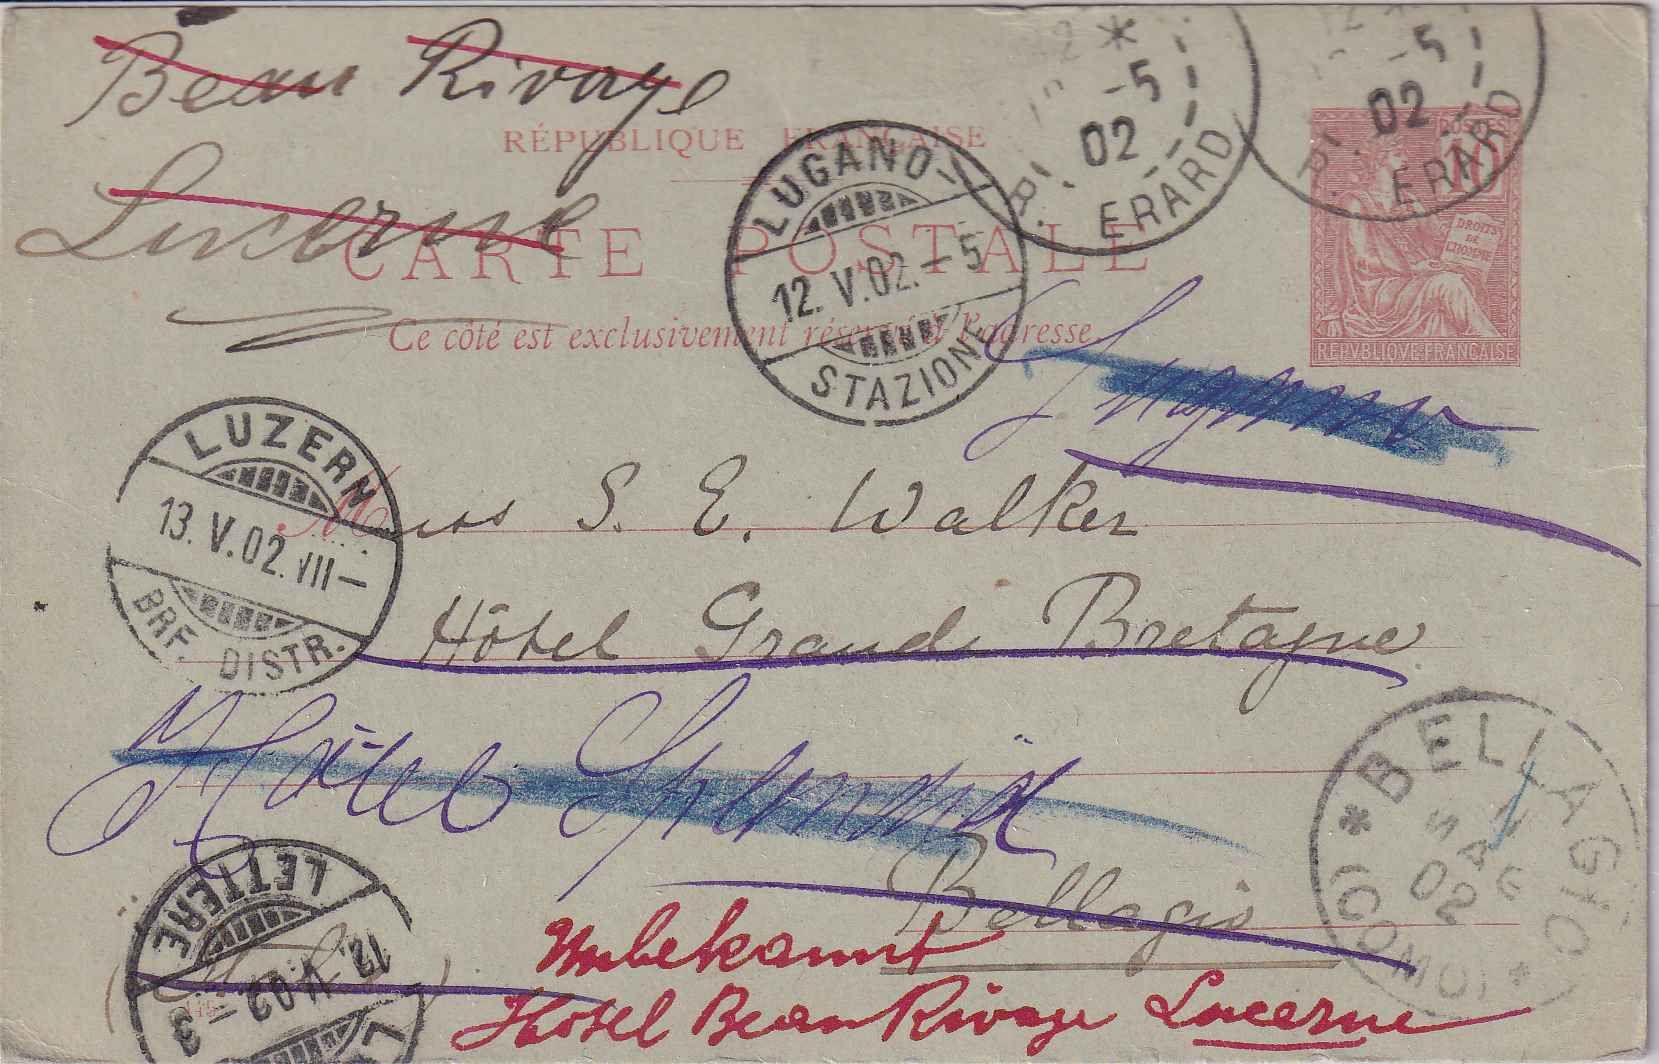 Beau Rivage
Lucerne
RÉPUBLIQUE FRANÇAISE
CARTE POSTALE
Ce côté est exclusivement réservé à l'adresse
* -5 02 R. ERARD
-5 02 R. ERARD
POSTES
10
DROITS DE L'HOMME
REPVBLIQVE FRANÇAISE
LUGANO-
12. V. 02. - 5
STAZIONE
Lugano
LUZERN
13. V. 02. VII-
BRF. DISTR.
Miss S. E. Walker
Hôtel Grande Bretagne
Hôtel Splendid
Bellagio
* BELLAGIO * (COMO)
02
LETTERE
12. V. 02 - 3
Unbekannt
Hotel Beau Rivage Lucerne